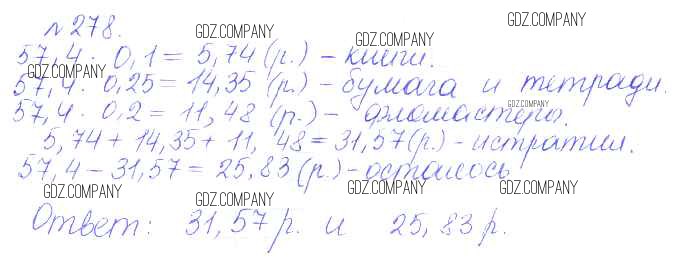 GDZ.COMPANY
№278. GDZ.COMPANY GDZ.COMPANY
57,4 · 0,1 = 5,74 (р.) - книги.
GDZ.COMPANY GDZ.COMPANY
57,4 · 0,25 = 14,35 (р.) - бумага и тетради.
57,4 · 0,2 = 11,48 (р.) - фломастеры. GDZ.COMPANY
5,74 + 14,35 + 11,48 = 31,57 (р.) - истратил.
57,4 - 31,57 = 25,83 (р.) - осталось
GDZ.COMPANY GDZ.COMPANY GDZ.COMPANY
Ответ: 31,57 р. и 25,83 р.
GDZ.COMPANY